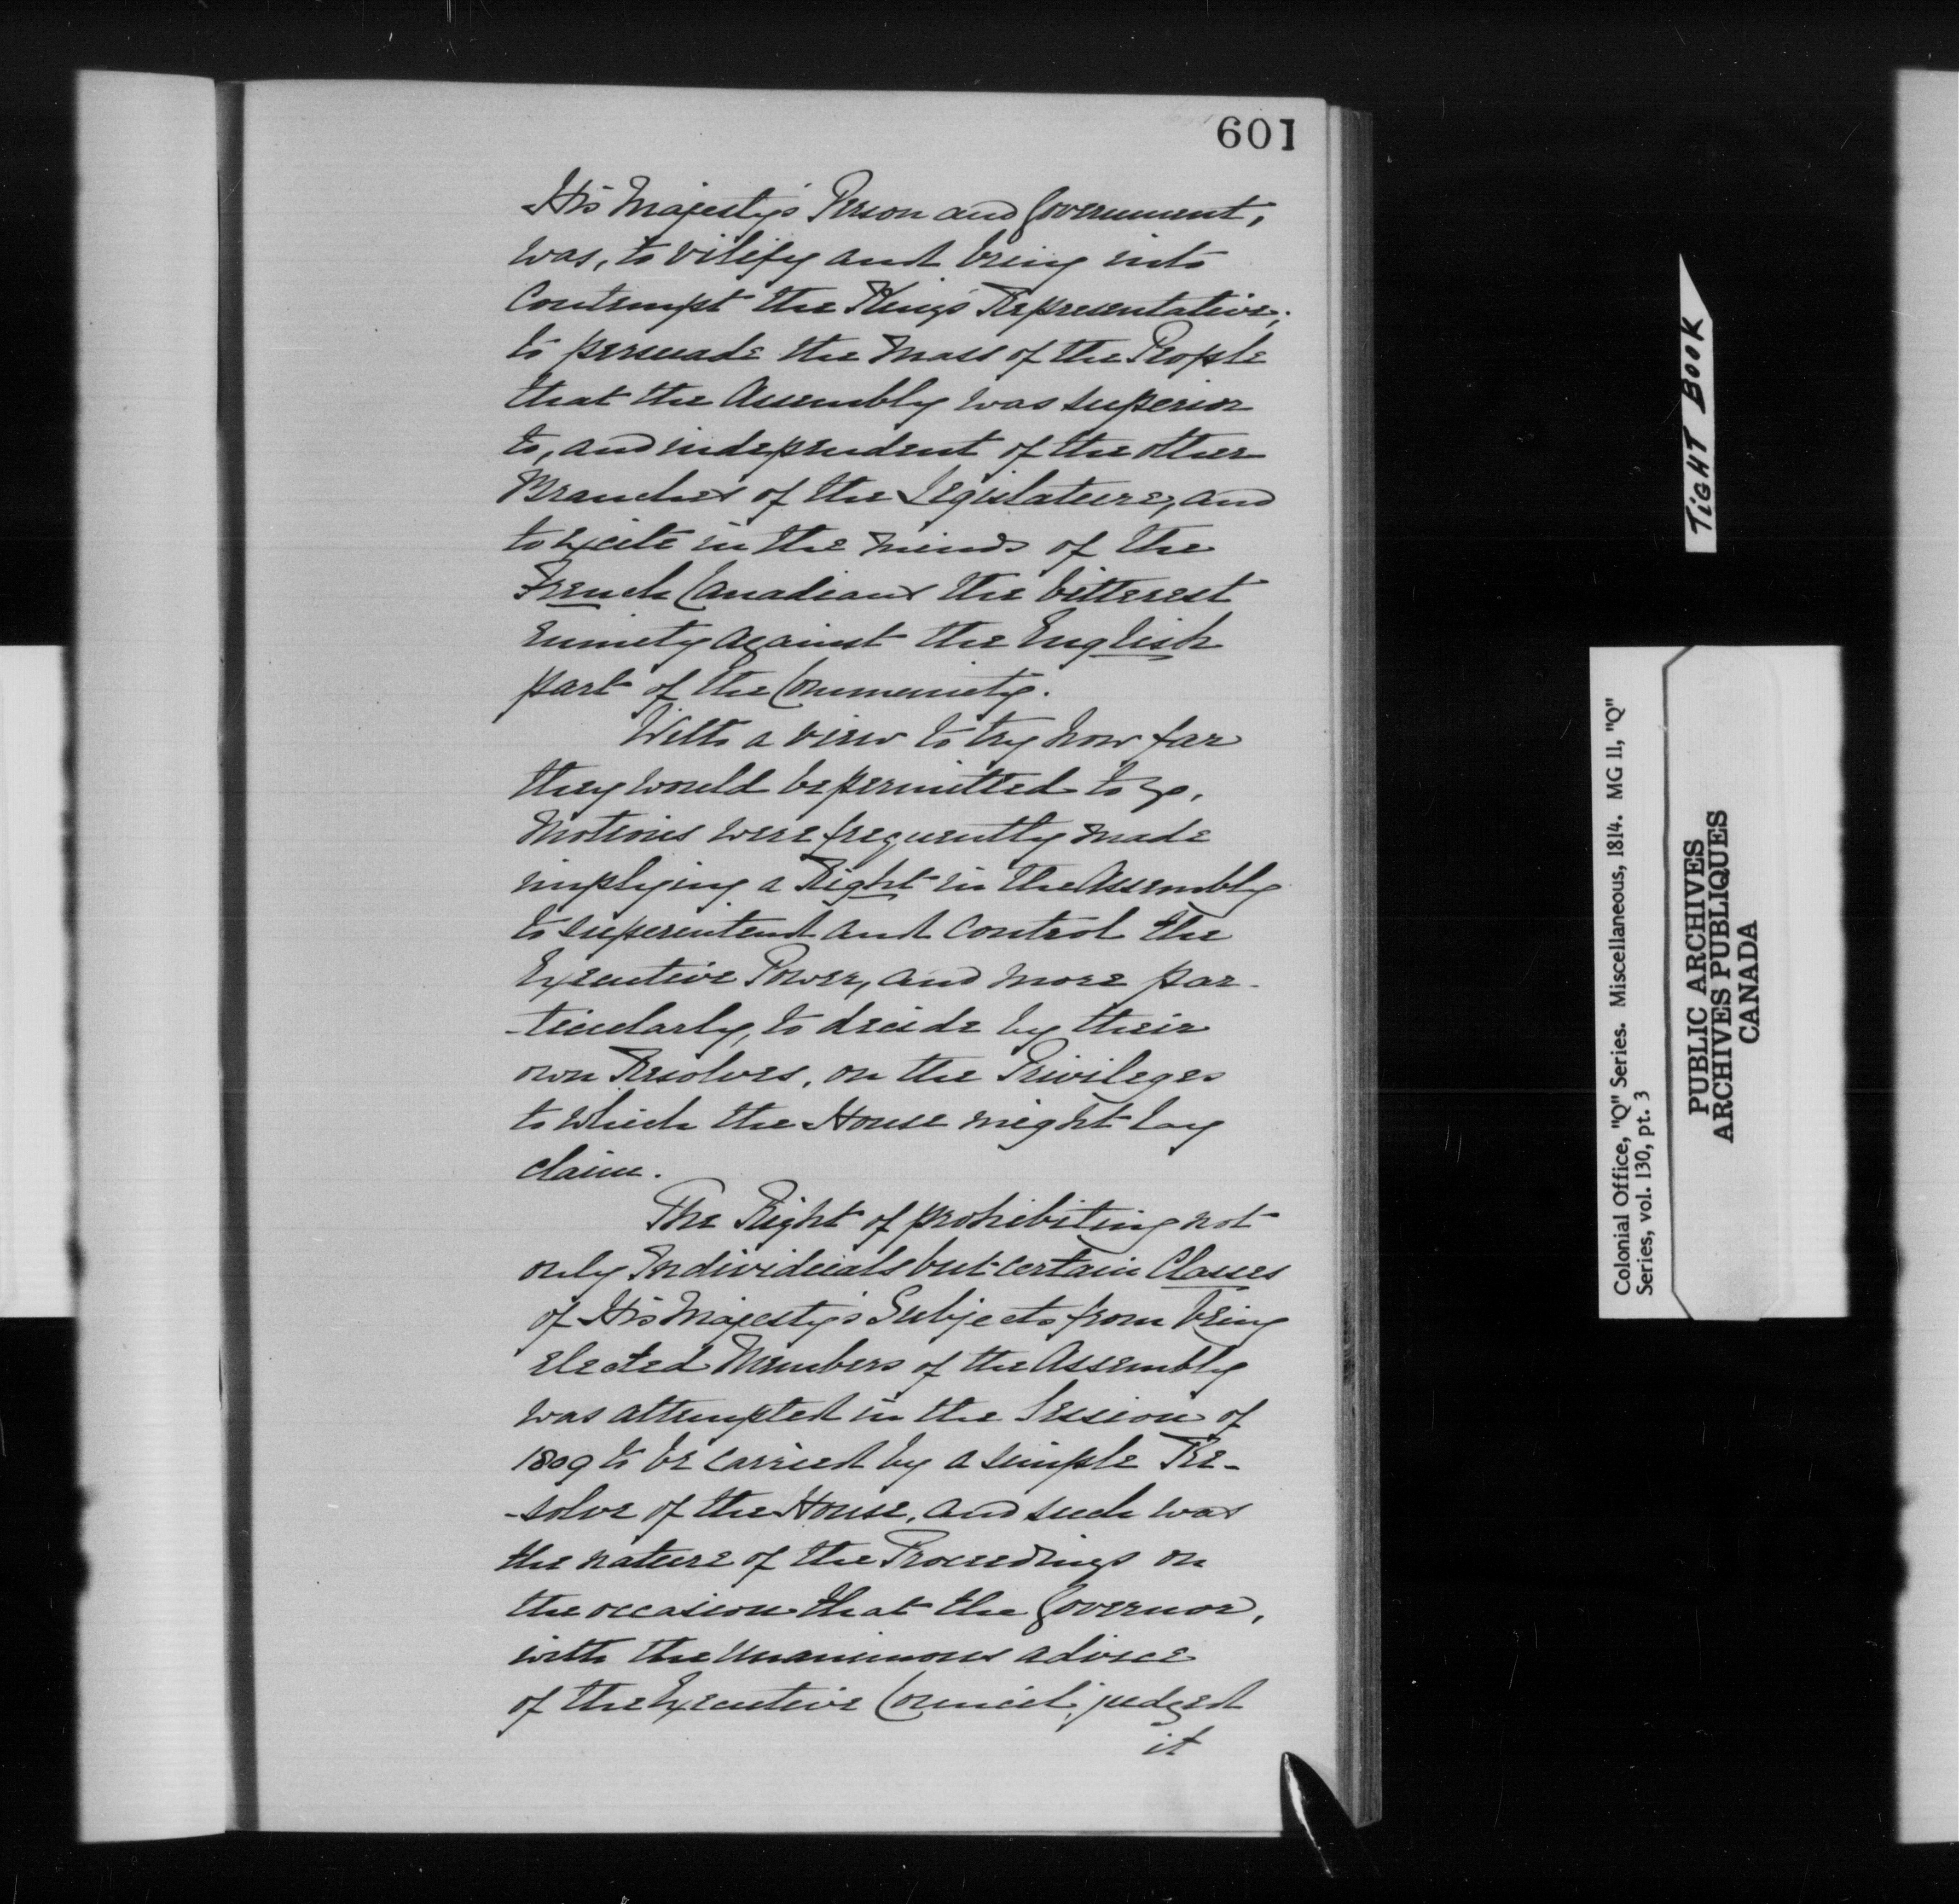 601
His Majesty's Person and Government,
was, to vilify and bring into
Contempt the King's Representative;
to persuade the Mass of the People
that the Assembly was superior
to, and independent of the other
Branches of the Legislature, and
to excite in the Minds of the
French Canadians the bitterest
Enmity against the English
part of the Community.
With a view to try how far
they would be permitted to go,
Motions were frequently made
implying a Right in the Assembly
to superintend and control the
Executive Power, and more par-
-ticularly, to decide by their
own Resolves, on the Privileges
to which the House might lay
claim.
The Right of prohibiting not
only Individuals but certain Classes
of His Majesty's Subjects from being
elected Members of the Assembly
was attempted in the Session of
1809 to be carried by a simple Re-
-solve of the House, and such was
the nature of the Proceedings on
the occasion that the Governor,
with the unanimous advice
of the Executive Council, judged
it
TIGHT BOOK
Colonial Office, "Q" Series. Miscellaneous, 1814. MG 11, "Q"
Series, vol. 130, pt. 3
PUBLIC ARCHIVES
ARCHIVES PUBLIQUES
CANADA